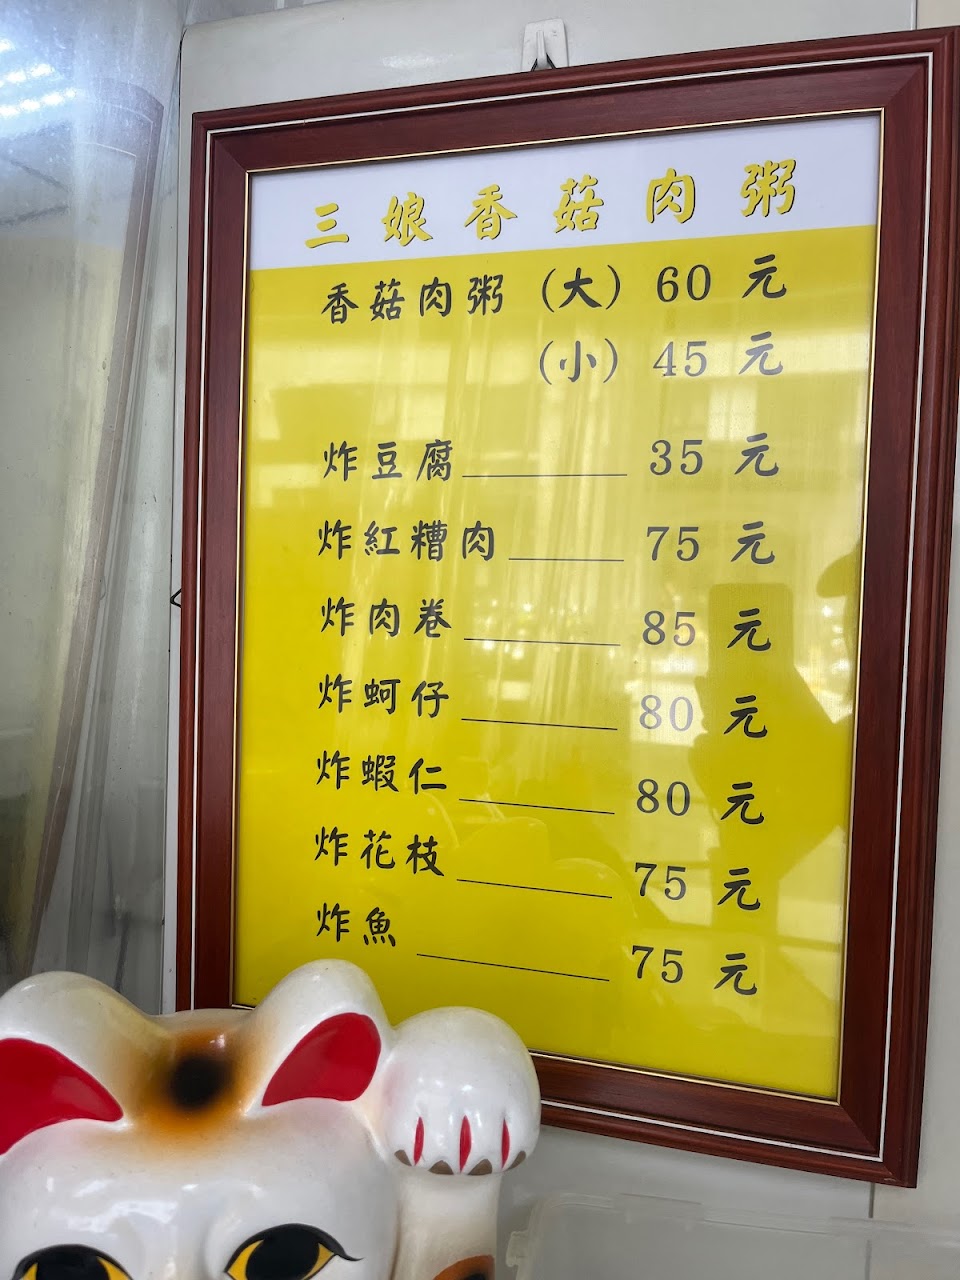 三娘香菇肉粥
香菇肉粥（大）60 元
（小）45 元
炸豆腐＿＿＿＿ 35 元
炸紅糟肉＿＿＿ 75 元
炸肉卷＿＿＿＿ 85 元
炸蚵仔＿＿＿＿ 80 元
炸蝦仁＿＿＿＿ 80 元
炸花枝＿＿＿＿ 75 元
炸魚＿＿＿＿＿ 75 元